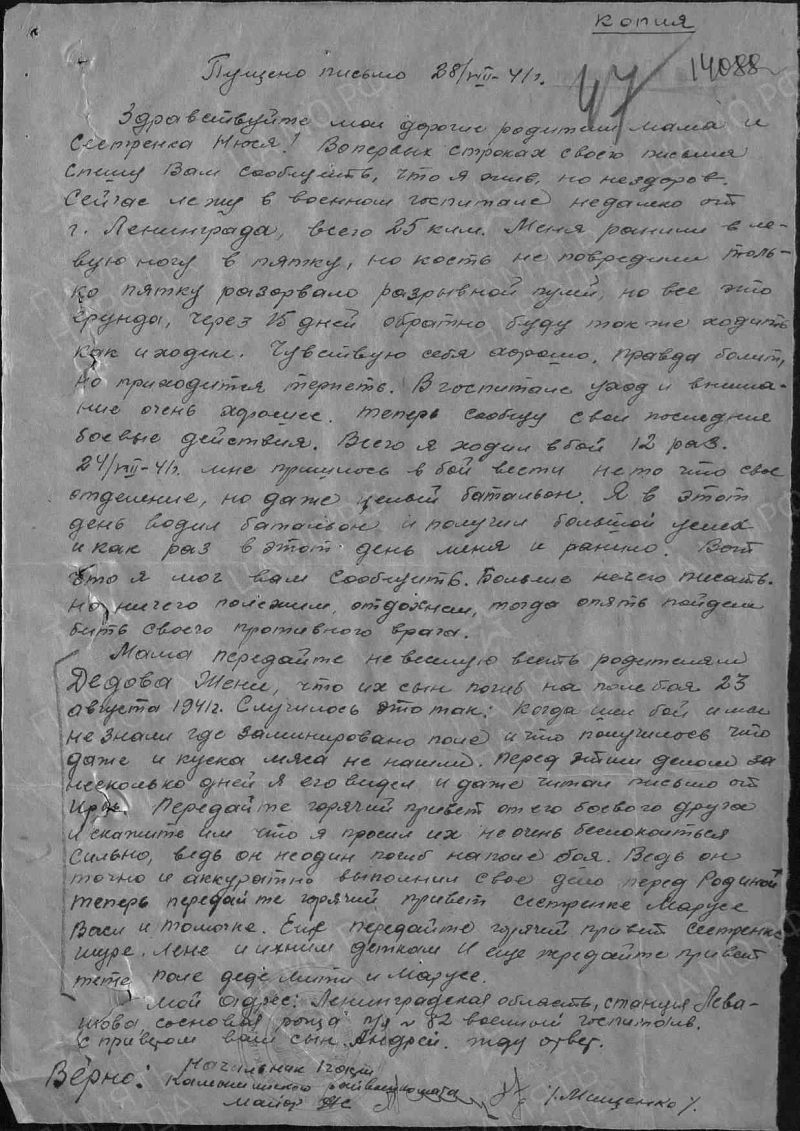 копия
Пущено письмо 28/VIII-41г. 47 14088
Здравствуйте мои дорогие родители мама и
сестренка Нюся! Вопервых строках своего письма
спешу Вам сообщить, что я жив, но нездоров.
Сейчас лежу в военном госпитале недалеко от
г. Ленинграда, всего 25 клм. Меня ранили в ле-
вую ногу в пятку, но кость не повредили толь-
ко пятку разорвало разрывной пулей, но все это
ерунда, через 15 дней обратно буду также ходить
как и ходил. Чувствую себя хорошо, правда болит,
но приходится терпеть. В госпитале уход и внима-
ние очень хорошее. Теперь сообщу свои последние
боевые действия. Всего я ходил в бой 12 раз.
24/VIII-41г. мне пришлось в бой вести не то что свое
отделение, но даже целый батальон. Я в этот
день водил батальон и получил большой успех
и как раз в этот день меня и ранило. Вот
что я мог вам сообщить. Больше нечего писать.
Но ничего полежим, отдохнем, тогда опять пойдем
бить своего противного врага.
Мама передайте не веселую весть родителям
Дедова Жени, что их сын погиб на поле боя 23
августа 1941г. Случилось это так: Когда шел бой и мы
не знали где заминировано поле и что получилось что
даже и куска мяса не нашли. Перед этим делом за
несколько дней я его видел и даже читал письмо от
Передайте горячий привет от его боевого друга
и скажите им что я просил их не очень беспокоиться
сильно, ведь он не один погиб на поле боя. Ведь он
точно и аккуратно выполнил свое дело перед Родиной
теперь передайте горячий привет сестренке Марусе
Васи и Томочке. Еще передайте горячий привет сестренке
Шуре. Лене и ихним деткам И еще передайте привет
тете Поле деде Мити и Марусе.
Мой адрес: Ленинградская область, станция Лева-
шова сосновая роща п/я № 82 военный госпиталь.
С приветом ваш сын Андрей. жду ответ.
Верно: Начальник 1 части
Камышинского райвоенкомата
майор /Мищенко/.